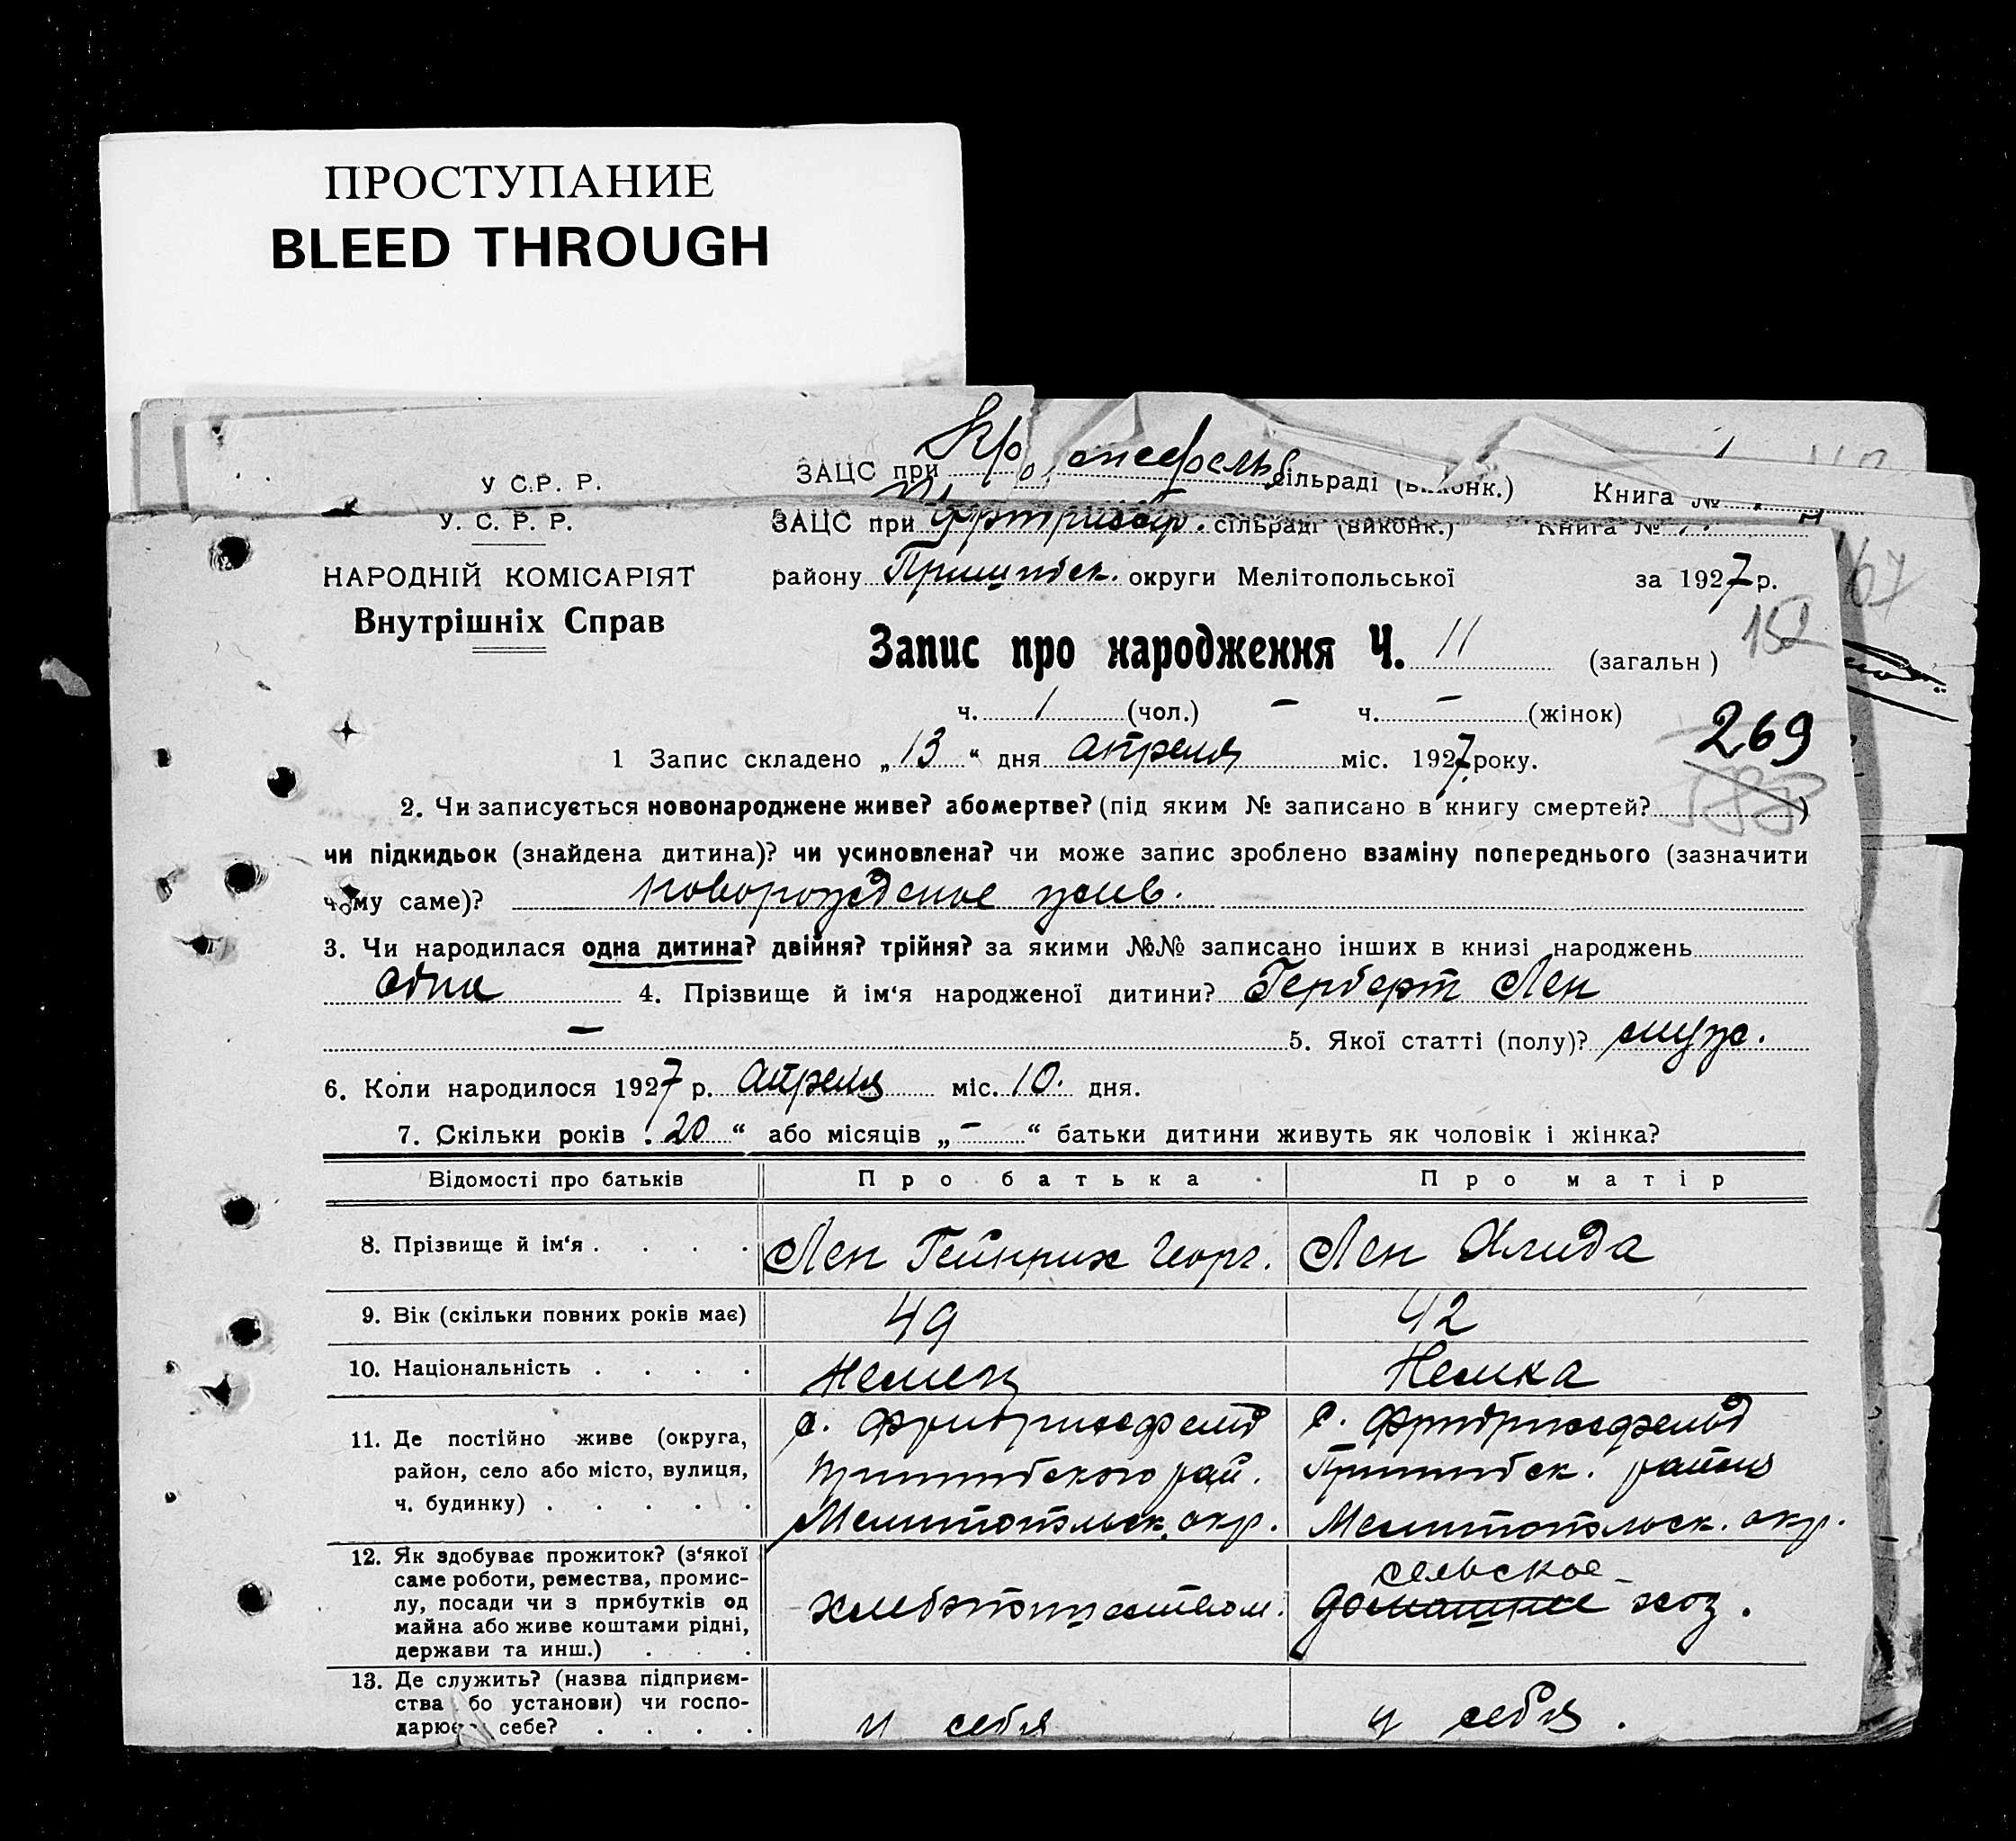 ПРОСТУПАНИЕ
BLEED THROUGH
У С.Р. Р. ЗАЦС при сільраді Книга №
У. С. Р. Р. ЗАЦС при сільраді (виконк.) Книга №
НАРОДНІЙ КОМІСАРІЯТ району Пришибск. округи Мелітопольської за 1927 р.
Внутрішніх Справ
Запис про народження Ч. 11 (загальн ) 152
ч. 1 (чол.) – ч. – (жінок)
269
1 Запис складено „13“ дня апреля міс. 1927 року.
2. Чи записується новонароджене живе? або мертве? (під яким № записано в книгу смертей? )
чи підкидьок (знайдена дитина)? чи усиновлена? чи може запис зроблено взаміну попереднього (зазначити
чому саме)? новорожденое жив.
3. Чи народилася одна дитина? двійня? трійня? за якими №№ записано інших в книзі народжень
одна 4. Прізвище й ім‘я народженої дитини? Герберт Лен
– 5. Якої статті (полу)? муж.
6. Коли народилося 1927 р. апреля міс. 10. дня.
7. Скільки років „20“ або місяців „–“ батьки дитини живуть як чоловік і жінка?
Відомості про батьків Про батька Про матір
8. Прізвище й ім‘я . . . . Лен Гейнрих Георг. Лен Алида
9. Вік (скільки повних років має) 49 42
10. Національність . . . . Немец Немка
11. Де постійно живе (округа, с. Фридрихсфельд с. Фридрихсфельд
район, село або місто, вулиця, Пришибского рай. Пришибск. района
ч. будинку) . . . . . Мелитопольск. окр. Мелитопольск. окр.
12. Як здобуває прожиток? (з‘якої
саме роботи, ремества, промис- сельское
лу, посади чи з прибутків од хлебопашеством. домашнее хоз.
майна або живе коштами рідні,
держави та инш.) . . .
13. Де служить? (назва підприєм-
ства бо установи) чи госпо-
дарює себе? . . . . у себя у себя.